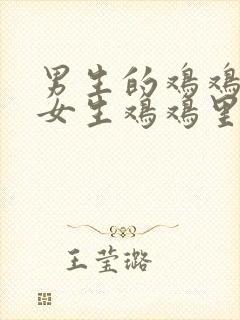 男生的鸡鸡
女生鸡鸡里
王莹璐